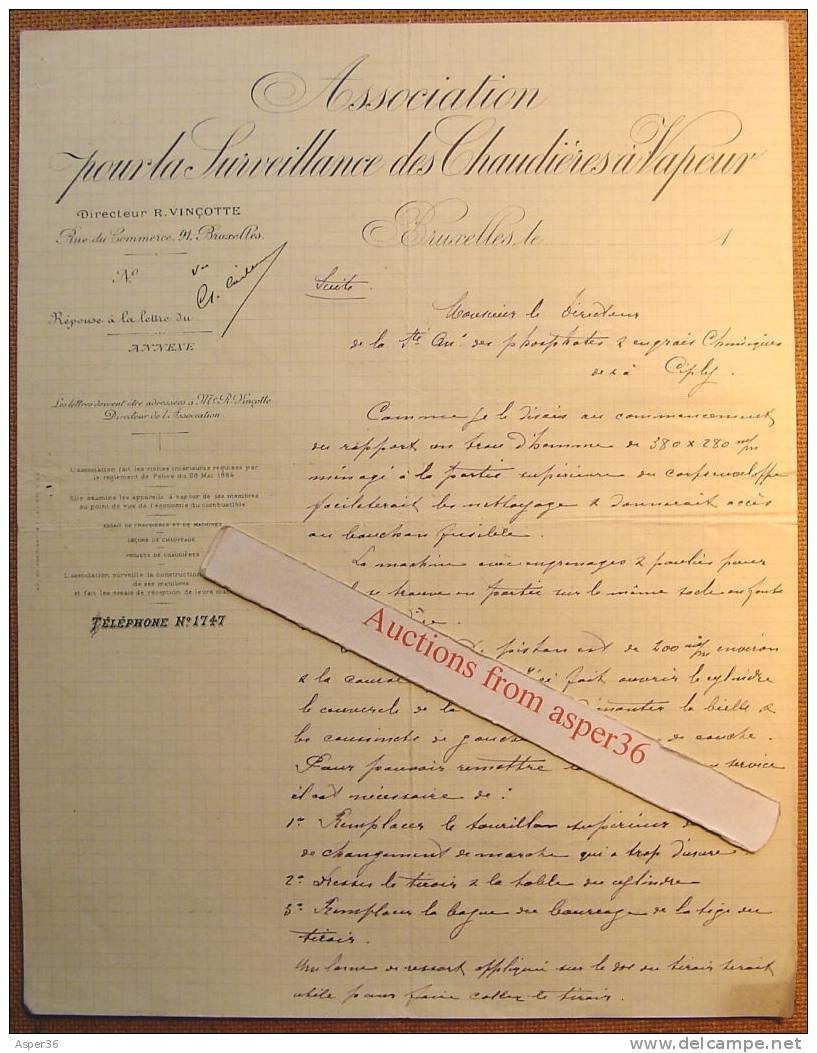 Association
pour la Surveillance des Chaudières à Vapeur
Directeur R. VINÇOTTE
Rue du Commerce, 91, Bruxelles.
Bruxelles, le 1
Nº
vu
Réponse à la lettre du
ANNEXE
Les lettres doivent être adressées à Mr. R. Vinçotte
Directeur de l'Association.
L'association fait les visites intérieures requises par
le règlement de Police du 28 Mai 1884
Elle examine les appareils à vapeur de ses membres
au point de vue de l'économie du combustible
ESSAIS DE CHAUDIÈRES ET DE MACHINES
LEÇONS DE CHAUFFAGE
PROJETS DE CHAUDIÈRES
L'association surveille la construction
de ses membres
et fait les essais de réception de leurs
TÉLÉPHONE Nº 1747
Suite.
Monsieur le Directeur
de la Sté Ane des phosphates & engrais Chimiques
de & à Ciply
Comme je le disais au commencement
du rapport un trou d'homme de 380 x 280 m/m
ménagé à la partie supérieure du corps enveloppe
faciliterait les nettoyages & donnerait accès
au bouchon fusible.
La machine avec engrenages & poulies pour
se trouve en partie sur le même socle en fonte
piston est de 200 m/m environ
& la course fait ouvrir le cylindre
le couvercle de la démonter la bielle &
les coussinets de de couche.
Pour pouvoir remettre service
il est nécessaire de :
1º Remplacer le tourillon supérieur
de changement de marche qui a trop d'usure
2º Dresser le tiroir & la table du cylindre
3º Remplacer la bague du bourrage de la tige du
tiroir.
Une lame de ressort appliquée sur le dos du tiroir serait
utile pour faire coller le tiroir.
Auctions from asper36
Asper36
www.delcampe.net